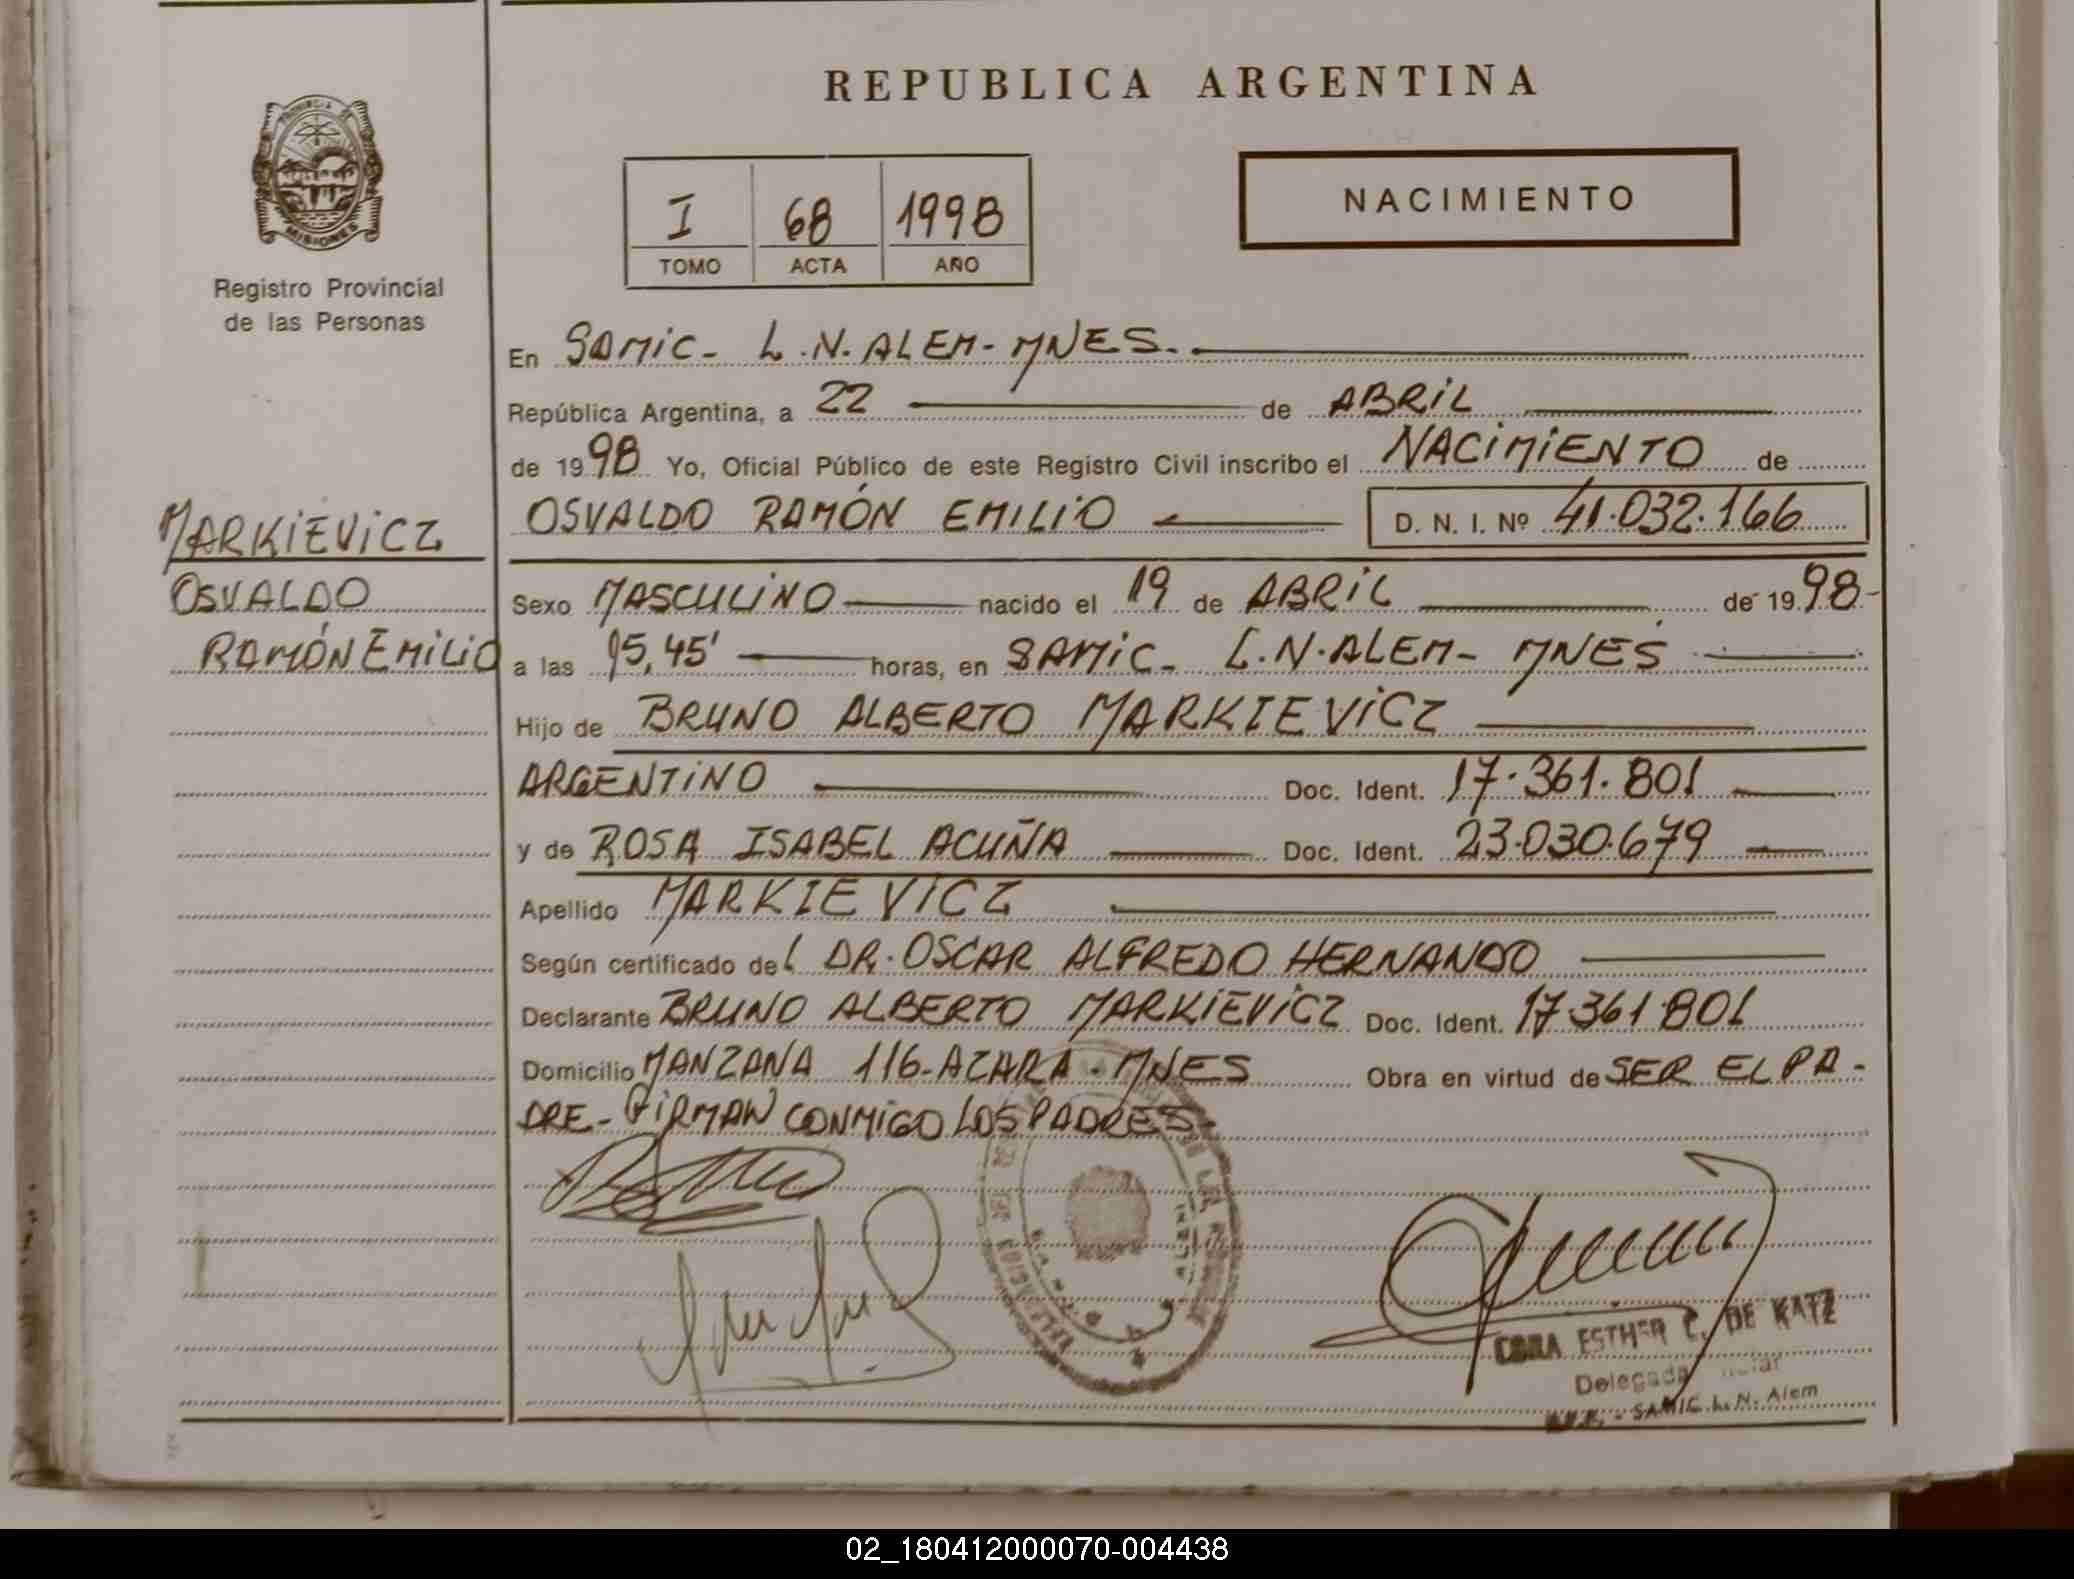 REPUBLICA ARGENTINA
PROVINCIA DE
MISIONES
Registro Provincial
de las Personas
I 68 1998
TOMO ACTA AÑO
NACIMIENTO
En SAMIC- L.N. ALEM- MNES.
República Argentina, a 22 de ABRIL
de 1998 Yo, Oficial Público de este Registro Civil inscribo el NACIMIENTO de
MARKIEVICZ
OSVALDO
RAMÓN EMILIO
OSVALDO RAMÓN EMILIO D. N. I. Nº 41.032.166
Sexo MASCULINO nacido el 19 de ABRIL de 1998-
a las 15,45' horas, en SAMIC- L.N. ALEM- MNES
Hijo de BRUNO ALBERTO MARKIEVICZ
ARGENTINO Doc. Ident. 17.361.801
y de ROSA ISABEL ACUÑA Doc. Ident. 23.030.679
Apellido MARKIEVICZ
Según certificado del DR. OSCAR ALFREDO HERNANDO
Declarante BRUNO ALBERTO MARKIEVICZ Doc. Ident. 17.361.801
Domicilio MANZANA 116-AZARA-MNES Obra en virtud de SER EL PA-
DRE- FIRMAN CONMIGO LOS PADRES.
ESTHER C. DE KATZ
SAMIC L. N. Alem
02_180412000070-004438